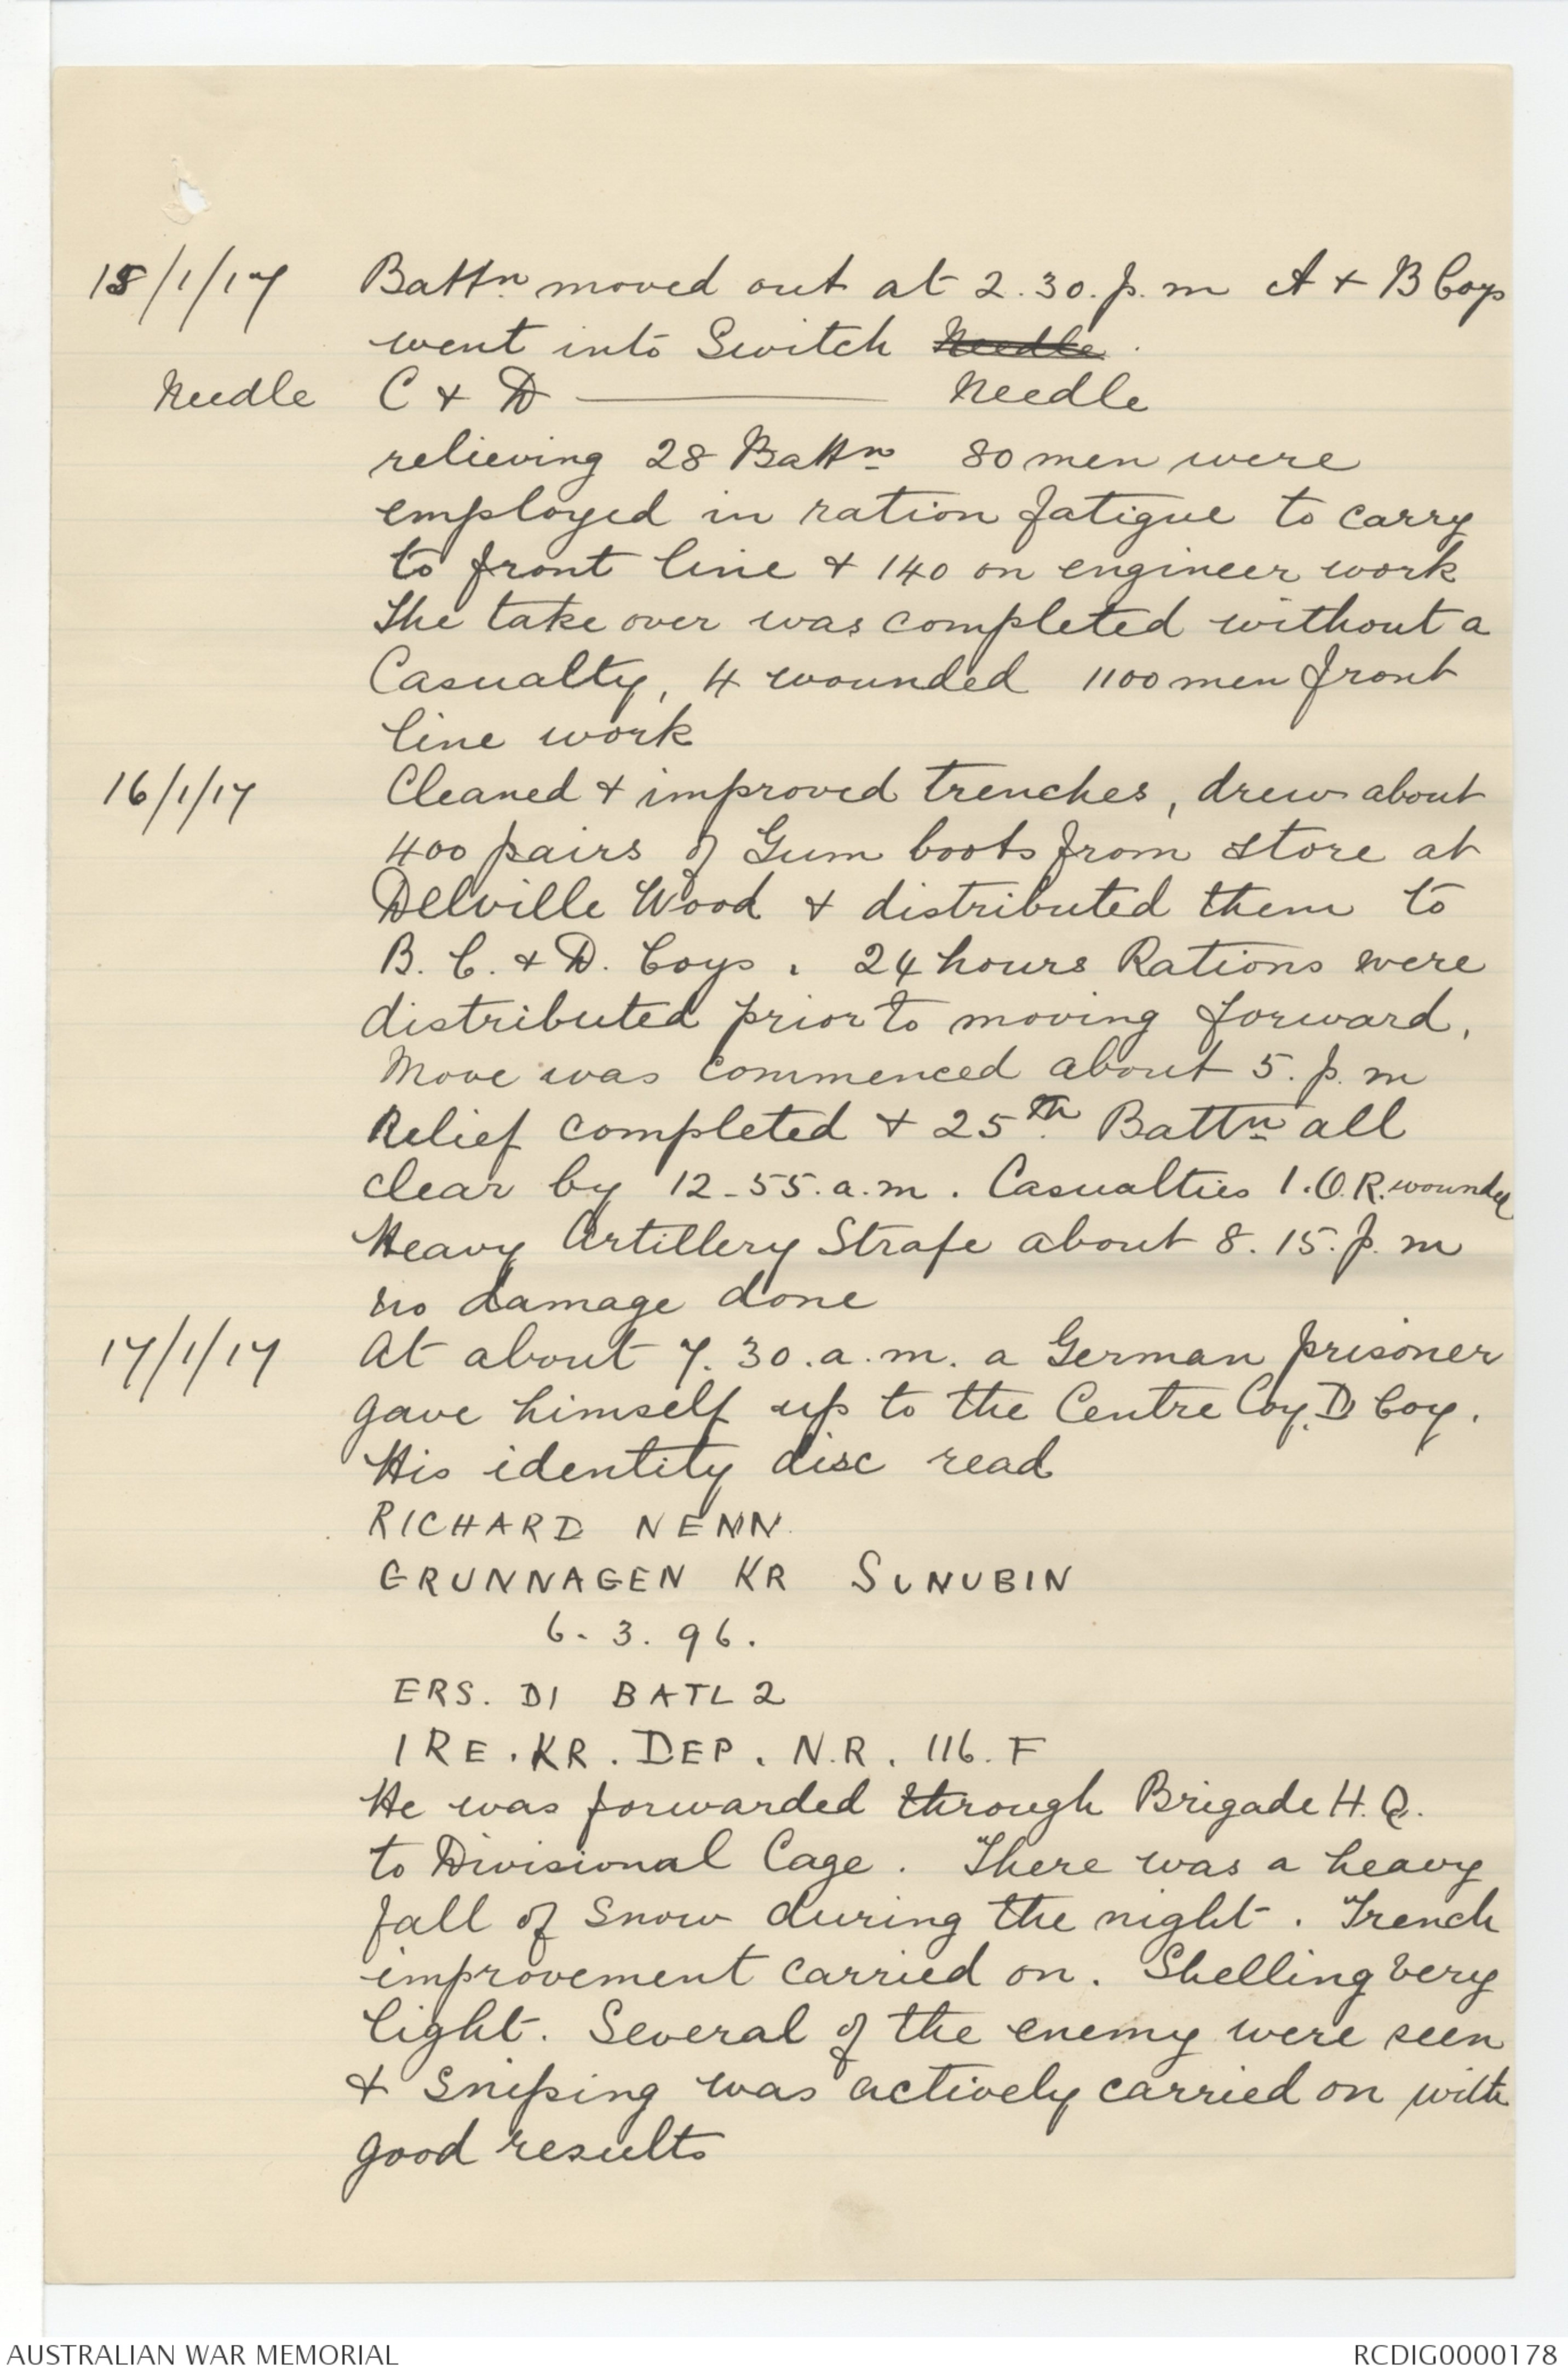 15/1/17 Battn. moved out at 2.30.p.m A + B Coys
went into Switch Needle.
Needle C + D ——— Needle
relieving 28 Battn 80 men were
employed in ration fatigue to carry
to front line + 140 on engineer work
The take over was completed without a
Casualty, 4 wounded 1100 men front
line work
16/1/17 Cleaned + improved trenches, drew about
400 pairs of Gum boots from store at
Delville Wood + distributed them to
B. C. + D. Coys. 24 hours Rations were
distributed prior to moving forward.
Move was commenced about 5. p. m
Relief completed + 25th. Battn all
clear by 12-55.a.m. Casualties 1.O.R. wounded
Heavy Artillery Strafe about 8.15.p.m
no damage done
17/1/17 At about 7.30.a.m. a German prisoner
gave himself up to the Centre Coy. D Coy.
His identity disc read
RICHARD NENN.
GRUNNAGEN KR SUNUBIN
6. 3. 96.
ERS. DI BATL 2
1 RE. KR. DEP. N.R. 116. F
He was forwarded through Brigade H.Q.
to Divisional Cage. There was a heavy
fall of snow during the night. Trench
improvement carried on. Shelling very
light. Several of the enemy were seen
+ sniping was actively carried on with
good results
AUSTRALIAN WAR MEMORIAL RCDIG0000178